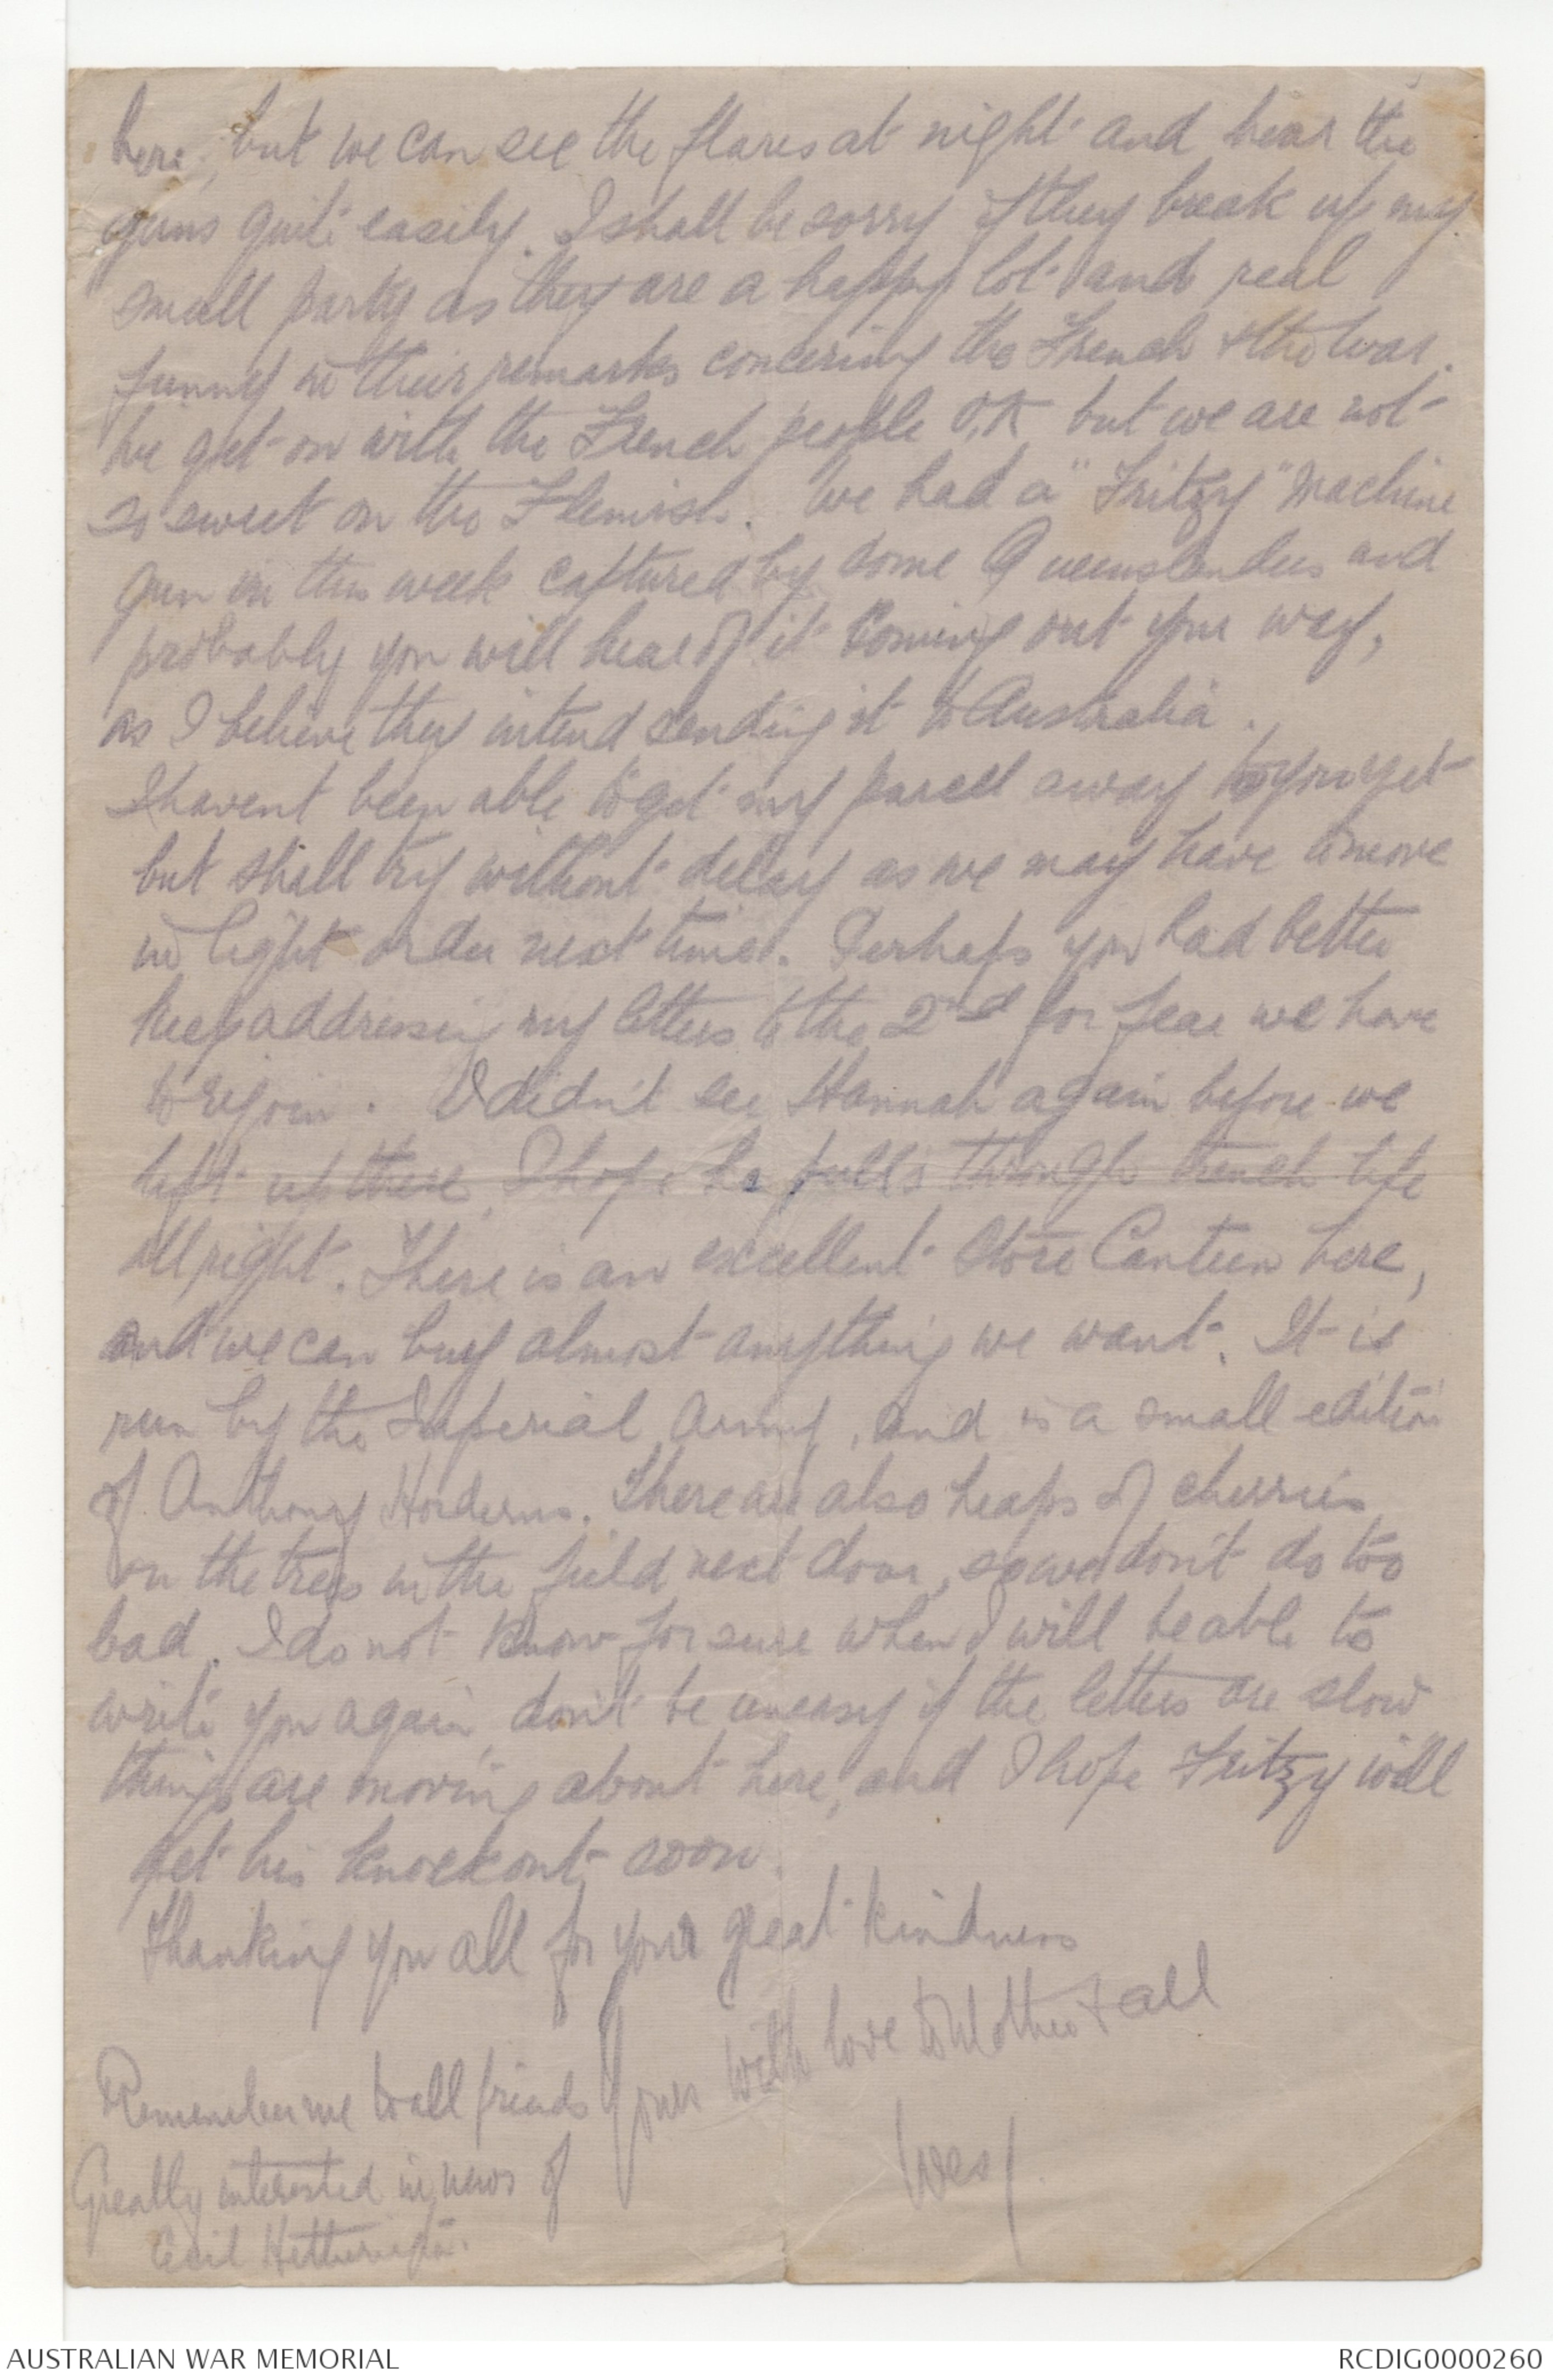 here, but we can see the flares at night and hear the
guns quite easily. I shall be sorry if they break up my
small party as they are a happy lot and real
funny in their remarks concering the French & the War.
We get on with the French people O.K but we are not
so sweet on the Flemish. We had a "Fritzy" Machine
gun in this week captured by some Queenslanders and
probably you will hear of it coming out your way,
as I believe they intend sending it to Australia.
I havent been able to get my parcel away to you yet
but shall try without delay as we may have to move
in light order next time. Perhaps you had better
keep addressing my letters to the 2nd for fear we have
to rejoin. I didn't see Hannah again before we
left up there, I hope he pulls through trench life
all right. There is an excellent Store Canteen here,
and we can buy almost anything we want. It is
run by the Imperial Army, and is a small edition
of Anthony Horderns. There are also heaps of cherries
on the trees in the field next door, so we don't do too
bad. I do not know for sure when I will be able to
write you again, don't be uneasy if the letters are slow
things are moving about here, and I hope Fritzy will
get his knockout soon.
Thanking you all for your great kindness
Yours with love to Mother & all
Wes
Remember me to all friends
Greatly interested in news of
Cecil Hetherington.
AUSTRALIAN WAR MEMORIAL
RCDIG0000260